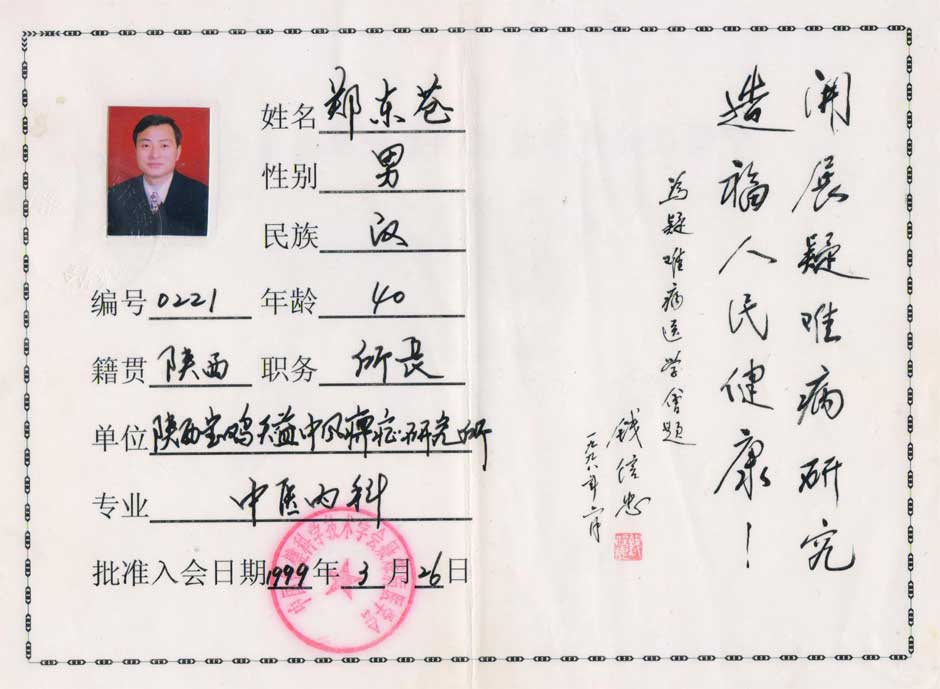 姓名 郑东苍
性别 男
民族 汉
编号 0221 年龄 40
籍贯 陕西 职务 所长
单位 陕西宝鸡天益中风痹症研究所
专业 中医内科
批准入会日期 1999 年 3 月 26 日
开展疑难病研究
造福人民健康!
为疑难病医学会题
钱信忠
一九九八年六月